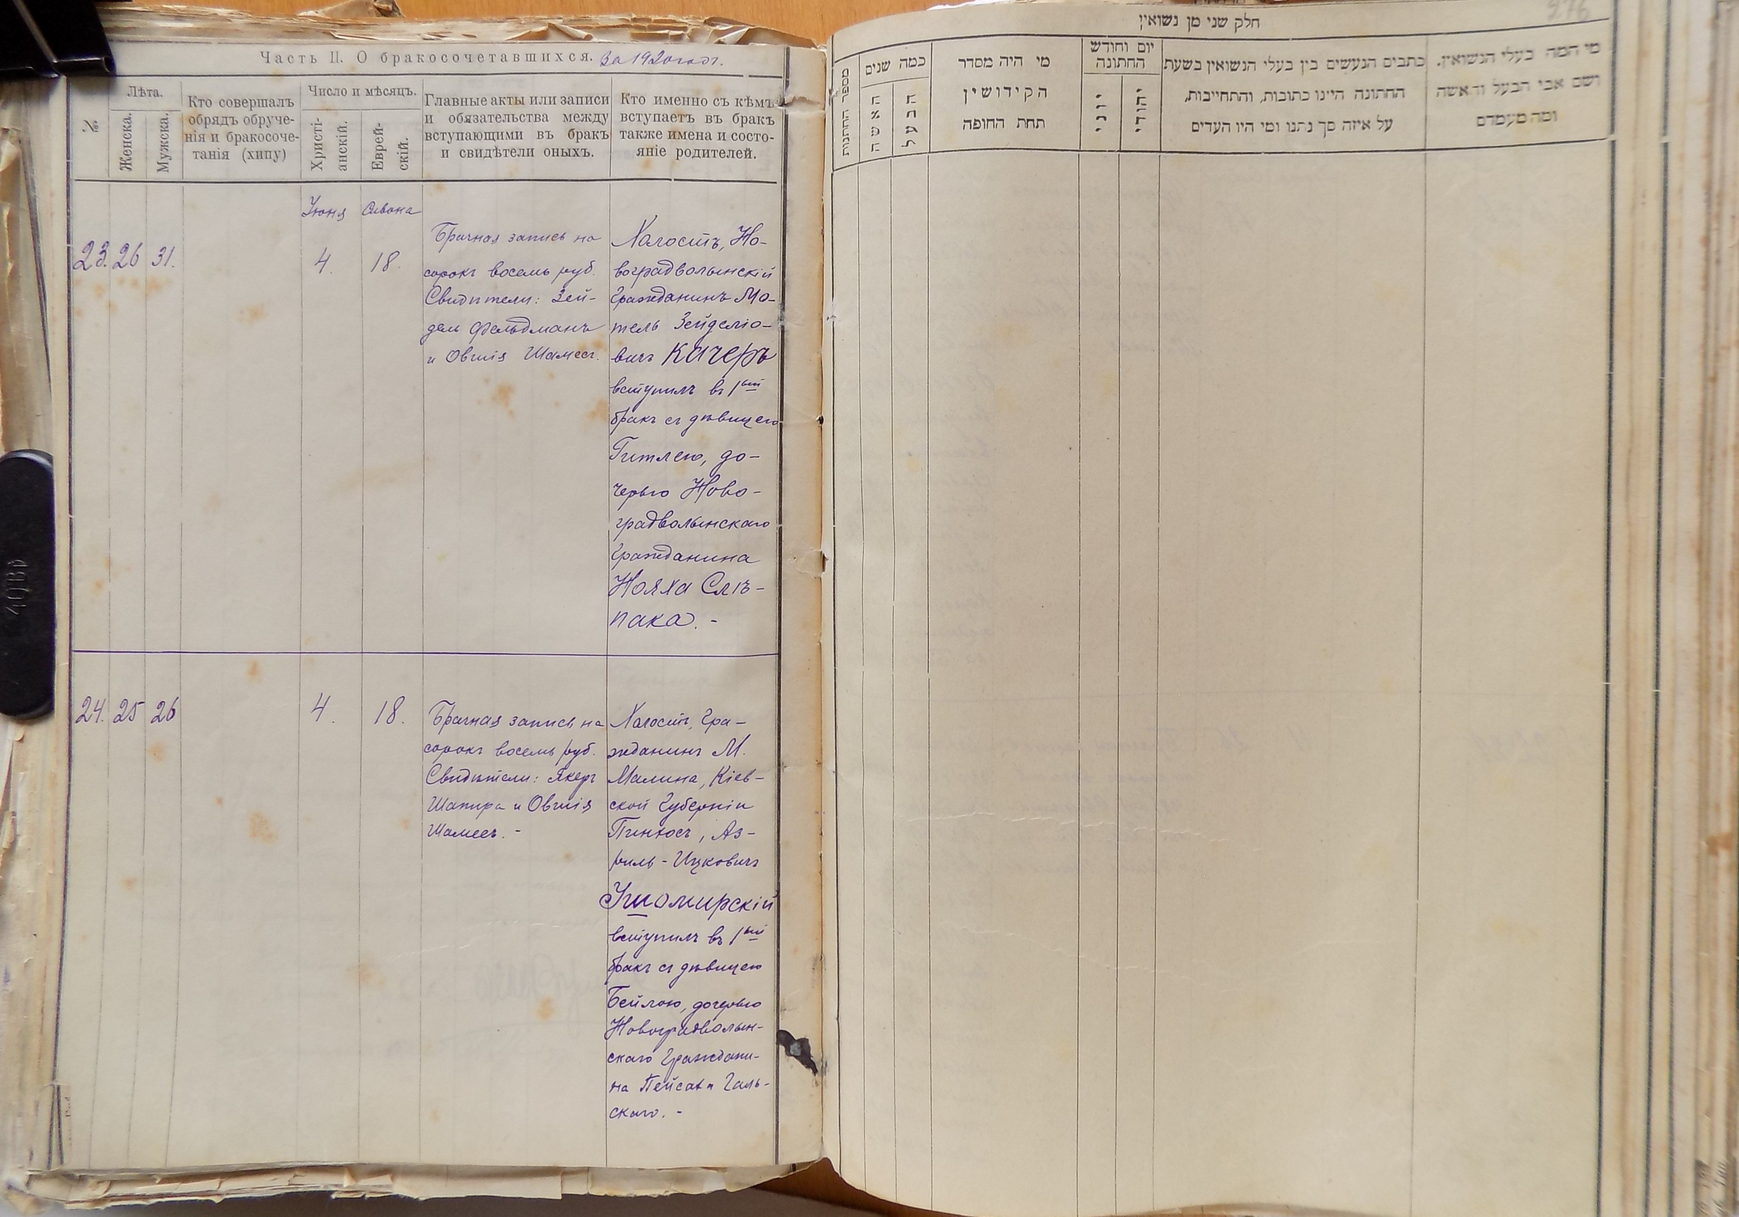 Часть II. О бракосочетавшихся. За 1920 годъ.
№
Лѣта.
Женска.
Мужска.
Кто совершалъ
обрядъ обруче-
нія и бракосоче-
танія (хипу)
Число и мѣсяцъ.
Христі-
анскій.
Еврей-
скій.
Главные акты или записи
и обязательства между
вступающими въ бракъ
и свидѣтели оныхъ.
Кто именно съ кѣмъ
вступаетъ въ бракъ
также имена и состо-
яніе родителей.
Июня Сивона
23. 26 31. 4. 18.
Брачная запись на
сорокъ восемь руб.
Свидѣтели: Зей-
дель Фельдманъ
и Овшія Шамесъ.
Холостъ, Но-
воградволынскій
Гражданинъ Мо-
тель Зейделіо-
вичъ Качеръ
вступилъ въ 1ый
бракъ съ дѣвицею
Гитлею, до-
черью Ново-
градволынскаго
Гражданина
Нояха Слѣ-
пака. -
24. 25 26 4. 18.
Брачная запись на
сорокъ восемь руб.
Свидѣтели:
Шапира и Овшія
Шамесъ. -
Холостъ, Гра-
жданинъ М.
Малина, Кіев-
ской Губерніи
Пинхосъ, Аз-
риль-Ицковичъ
Ушомирскій
вступилъ въ 1ый
бракъ съ дѣвицею
Бейлою, дочерью
Новоградволын-
скаго Граждани-
на Пейсаха Галь-
скаго. -
חלק שני מן נשואין
מספר החתונות
כמה שנים
האשה
הבעל
מי היה מסדר
הקידושין
תחת החופה
יום וחודש
החתונה
יוני
יהודי
כתבים הנעשים בין בעלי הנשואין בשעת
החתונה היינו כתובות, והתחייבות,
על איזה סך נתנו ומי היו העדים
מי המה בעלי הנשואין,
ושם אבי הבעל והאשה
ומה מעמדם